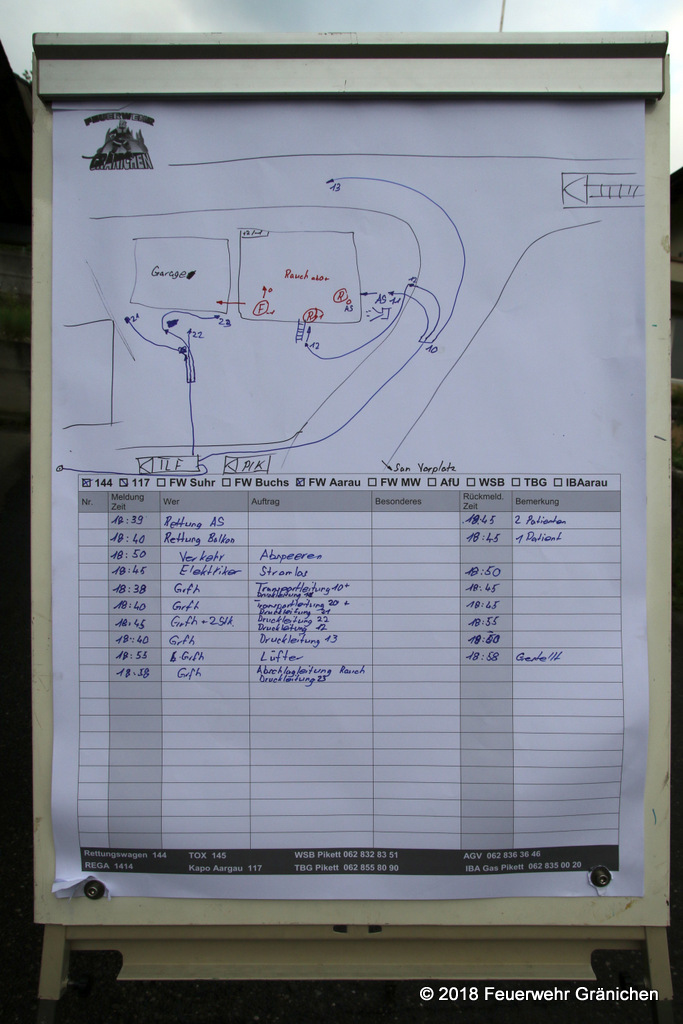 FEUERWEHR
GRÄNICHEN
13
Garage
Rauch
F
R
AS
AS
11
21
23
22
12
10
TLF
PIK
San Vorplatz
144 117 FW Suhr FW Buchs FW Aarau FW MW AfU WSB TBG IBAarau
Nr. Meldung Zeit Wer Auftrag Besonderes Rückmeld. Zeit Bemerkung
18:39 Rettung AS 18:45 2 Patienten
18:40 Rettung Balkon 18:45 1 Patient
18:50 Verkehr Absperren
18:45 Elektriker Stromlos 18:50
18:38 Grfh Transportleitung 10+ 18:45
Druckleitung
18:40 Grfh Transportleitung 20 + 18:45
Druckleitung 21
18:45 Grfh + 2Stk Druckleitung 22 18:55
Druckleitung 12
18:40 Grfh Druckleitung 13 18:50
18:55 Grfh Lüfter 18:58 Gestellt
18:58 Grfh Abschlagleitung Rauch
Druckleitung 23
Rettungswagen 144 TOX 145 WSB Pikett 062 832 83 51 AGV 062 836 36 46
REGA 1414 Kapo Aargau 117 TBG Pikett 062 855 80 90 IBA Gas Pikett 062 835 00 20
© 2018 Feuerwehr Gränichen